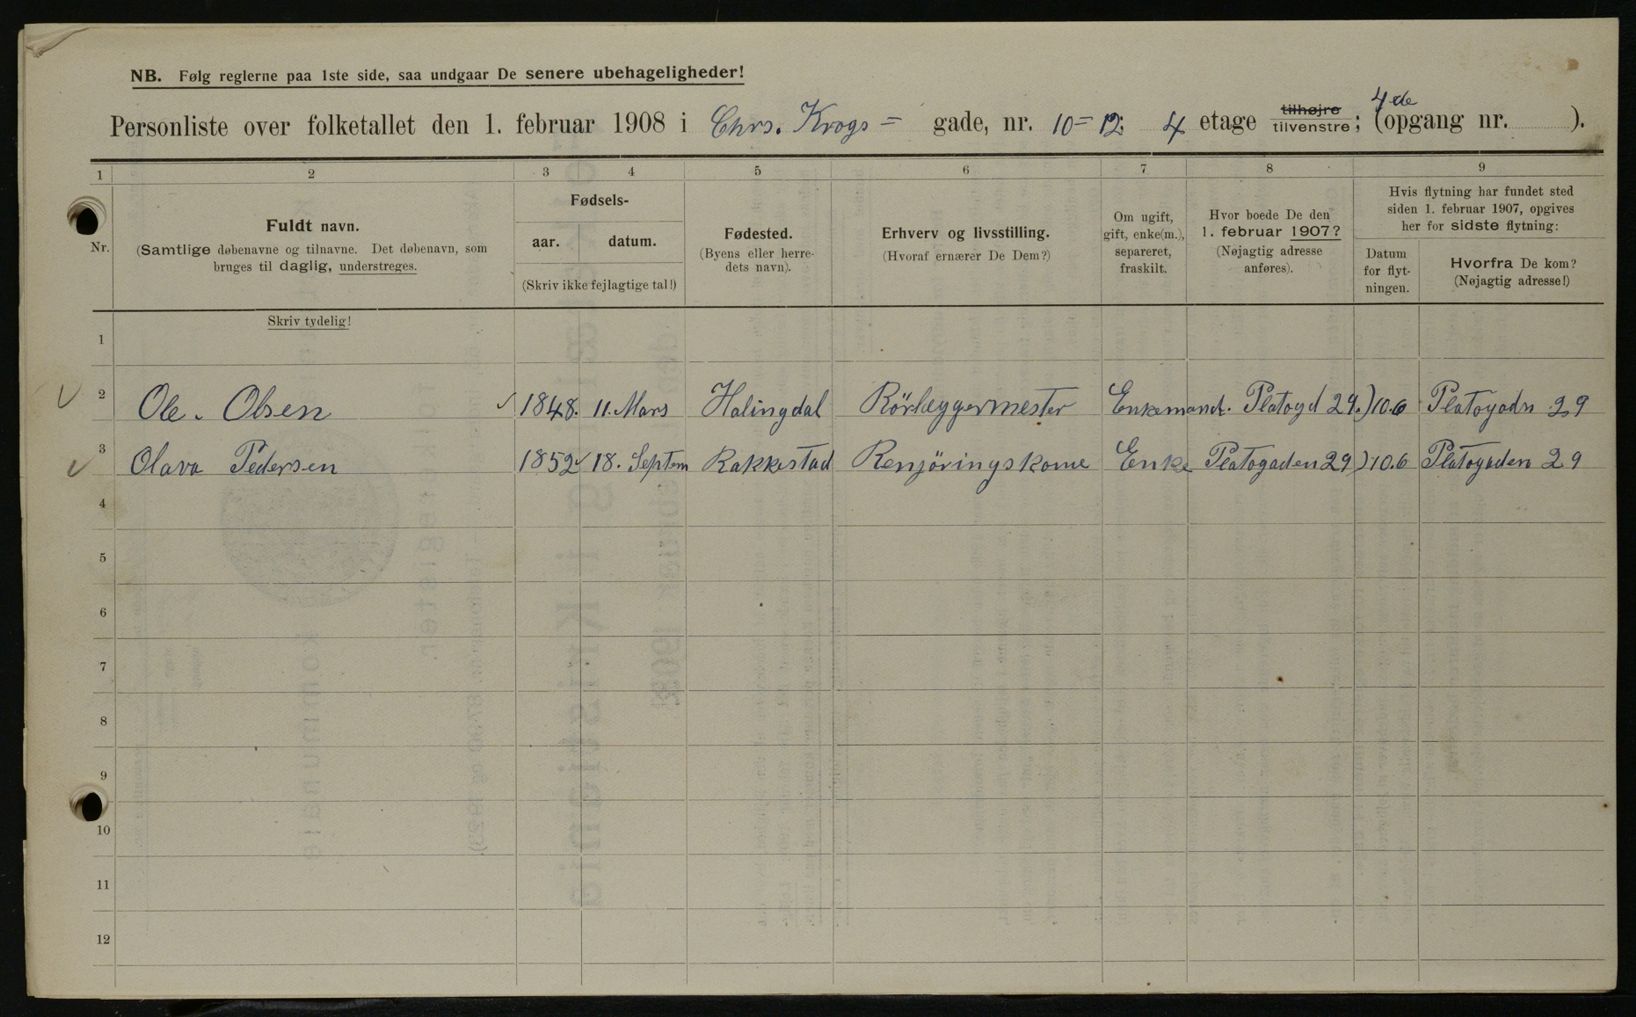 NB. Følg reglerne paa 1ste side, saa undgaar De senere ubehageligheder!
Personliste over folketallet den 1. februar 1908 i Chrs. Krogs = gade, nr. 10=12; 4 etage tilhøjre tilvenstre; 4de (opgang nr. ).
1 2 3 4 5 6 7 8 9
Nr.
Fuldt navn.
(Samtlige døbenavne og tilnavne. Det døbenavn, som
bruges til daglig, understreges.
Fødsels-
aar. datum.
(Skriv ikke fejlagtige tal!)
Fødested.
(Byens eller herre-
dets navn).
Erhverv og livsstilling.
(Hvoraf ernærer De Dem?)
Om ugift,
gift, enke(m.),
separeret,
fraskilt.
Hvor boede De den
1. februar 1907?
(Nøjagtig adresse
anføres).
Hvis flytning har fundet sted
siden 1. februar 1907, opgives
her for sidste flytning:
Datum
for flyt-
ningen.
Hvorfra De kom?
(Nøjagtig adresse!)
Skriv tydelig!
1
2 Ole. Olsen 1848. 11. Mars Halingdal Rörlæggermester Enkemand. Platogd 29.) 10.6 Platogadn 29
3 Olava Pedersen 1852 18. Septem Rakkestad Renjöringskone Enke Platogaden 29) 10.6 Platogaden 29
4
5
6
7
8
9
10
11
12